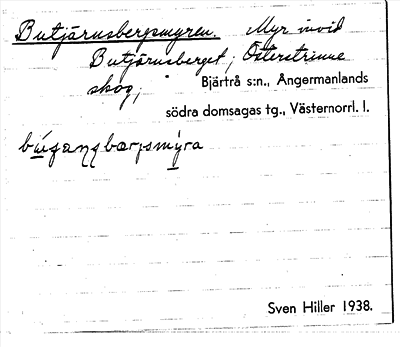 Butjärnsbergsmyren. Myr invid
Butjärnsberget; Österstrinne
skog; Bjärtrå s:n., Ångermanlands
södra domsagas tg., Västernorrl. l.
Sven Hiller 1938.